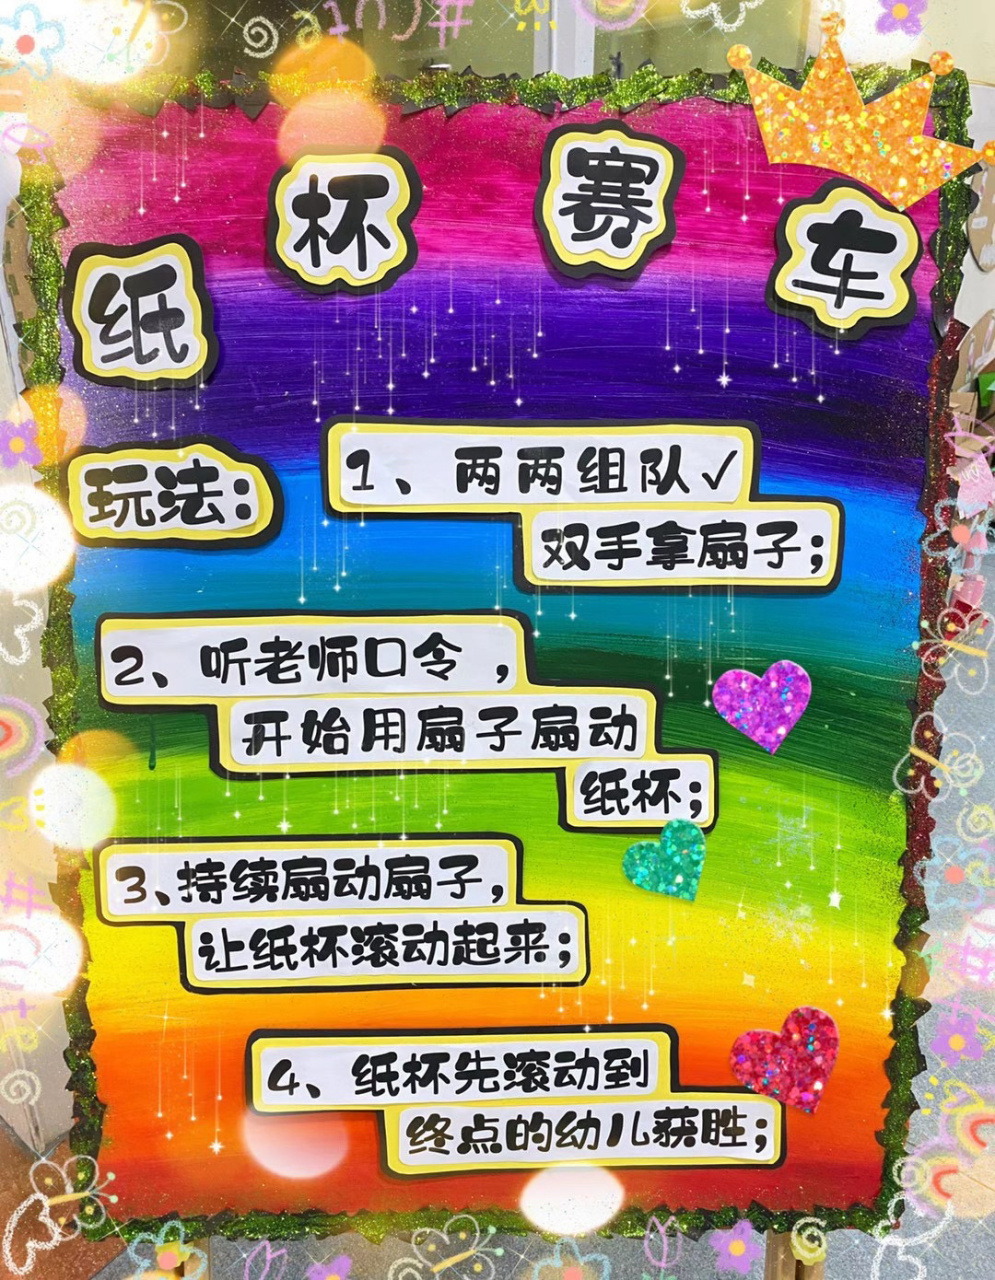 纸杯赛车
玩法:
1、两两组队✓
双手拿扇子;
2、听老师口令，
开始用扇子扇动
纸杯;
3、持续扇动扇子,
让纸杯滚动起来;
4、纸杯先滚动到
终点的幼儿获胜;